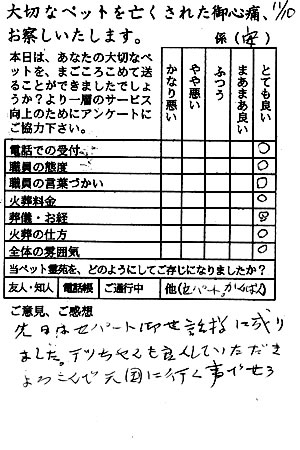 大切なペットを亡くされた御心痛、 11/10
お察しいたします。 係（安）
本日は、あなたの大切なペ
ットを、まごころこめて送
ることができましたでしょ
うか？より一層のサービス
向上のためにアンケートに
ご協力下さい。
かなり悪い
やや悪い
ふつう
まあまあ良い
とても良い
電話での受付
職員の態度
職員の言葉づかい
火葬料金
葬儀・お経
火葬の仕方
全体の雰囲気
当ペット霊苑を、どのようにしてご存じになりましたか？
友人・知人 電話帳 ご通行中 他（セパート
ご意見、ご感想
先日はセパート御世話に成り
ました。
していただき
よろこんで天国に行く事